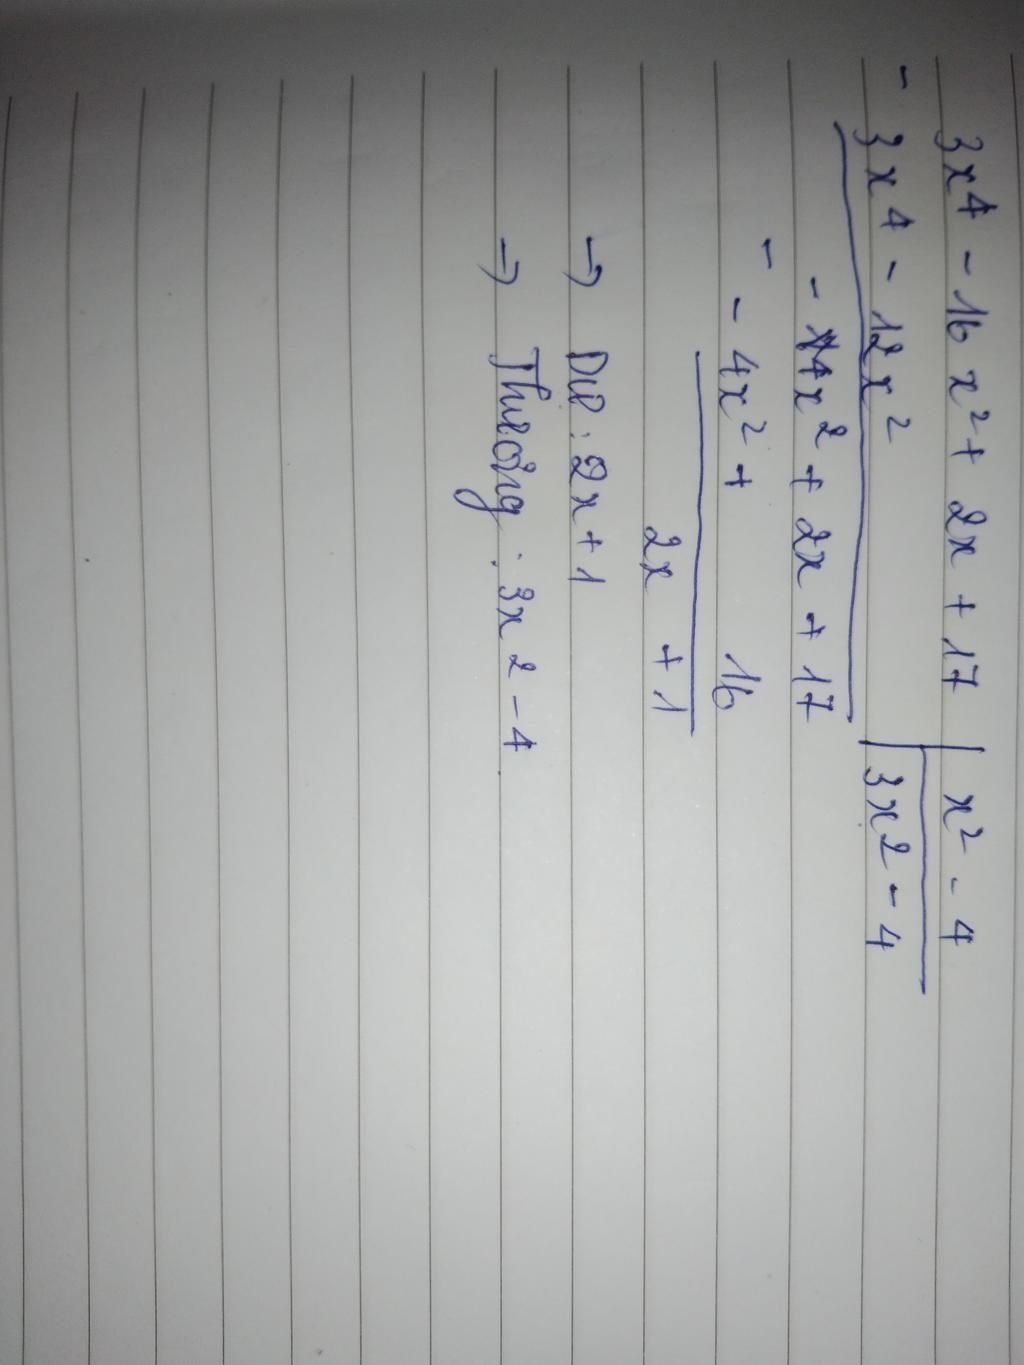 3x⁴ - 16x² + 2x + 17 | x² - 4
- 3x⁴ - 12x² | 3x2 - 4
- 4x² + 2x + 17
- - 4x² + 16
2x + 1
→ Dư : 2x + 1
→ Thương : 3x2 - 4